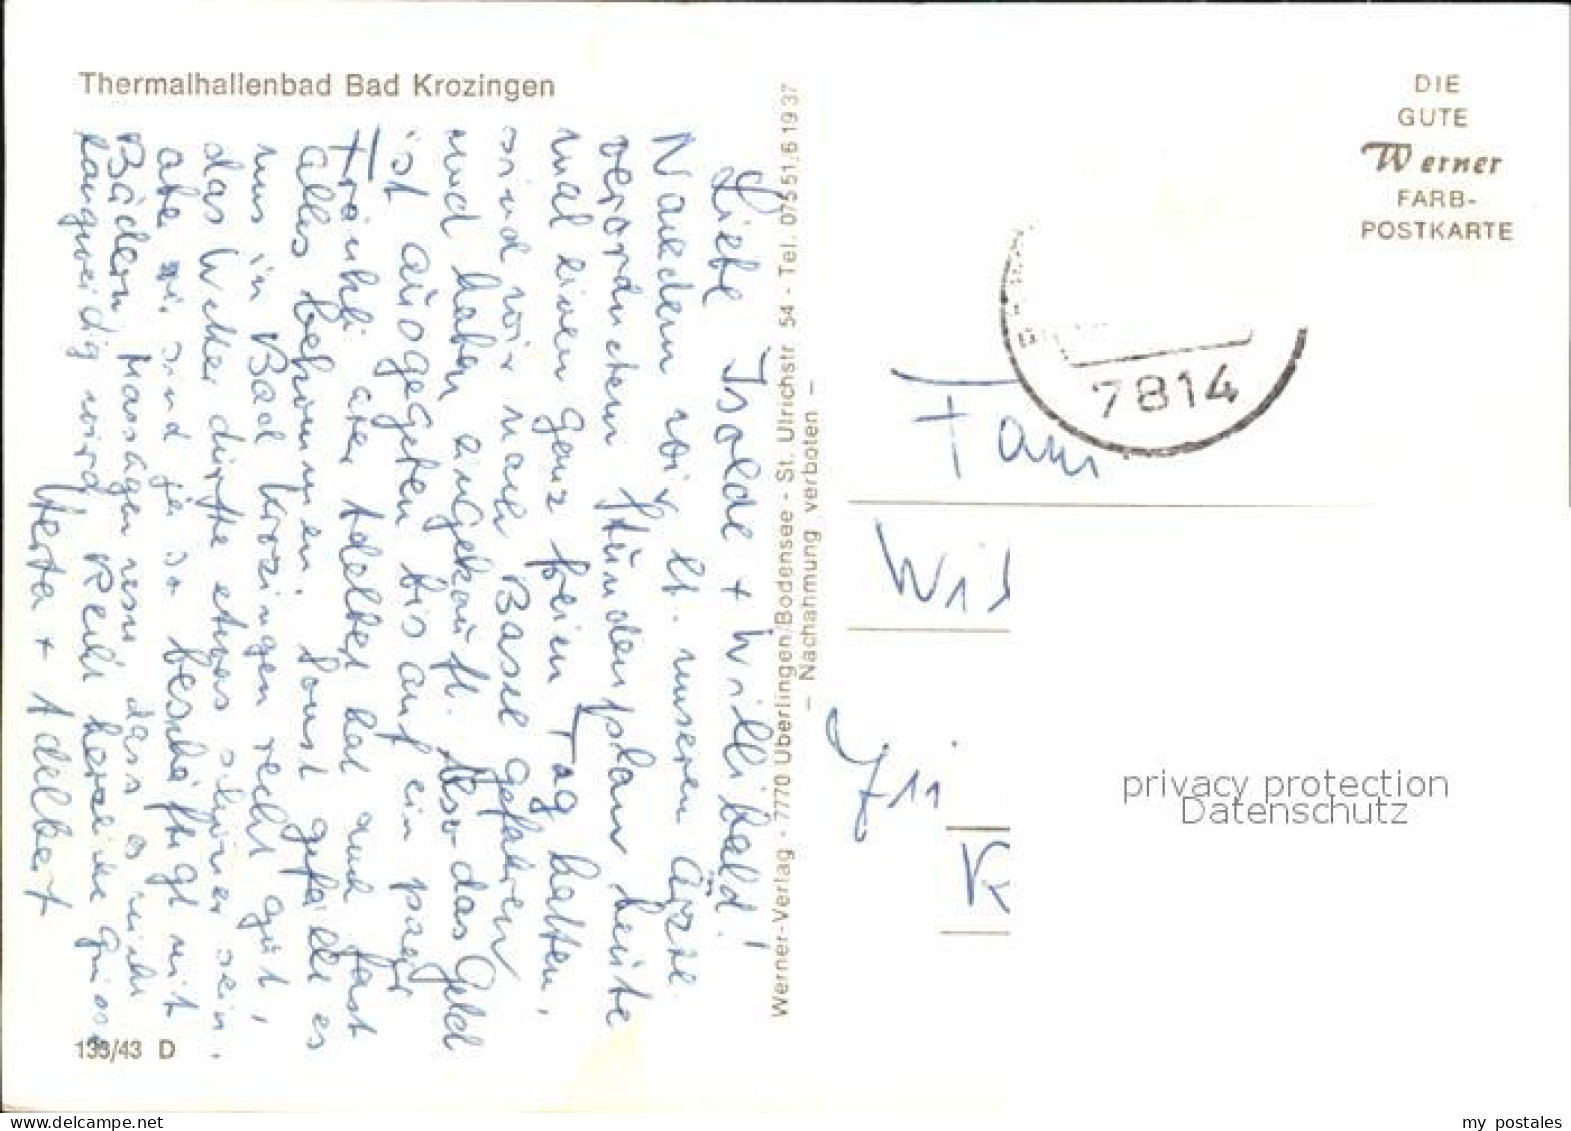 Thermalhallenbad Bad Krozingen
Liebe Isolde + Willibald!
Nachdem wir lt. unseren Ärzte
verordneten Stundenplan heute
mal einen ganz freien Tag hatten,
sind wir nach Basel gefahren
und haben eingekauft. Also das Geld
ist ausgegeben bis auf ein paar
Fränkli aber Adelbert hat auch fast
alles bekommen. Sonst gefällt es
uns in Bad Krozingen recht gut,
das Wetter dürfte etwas schöner sein.
aber wir sind ja so beschäftigt mit
Bädern, Massagen usw. dass es nicht
langweilig wird. Recht herzliche Grüsse
Herta + Adelbert
133/43 D
Werner-Verlag - 7770 Überlingen/Bodensee - St. Ulrichstr 54 - Tel. 07551/61937
— Nachahmung verboten —
DIE
GUTE
Werner
FARB-
POSTKARTE
7814
Fam
Wil
711
privacy protection
Datenschutz
delcampe.net
my_postales